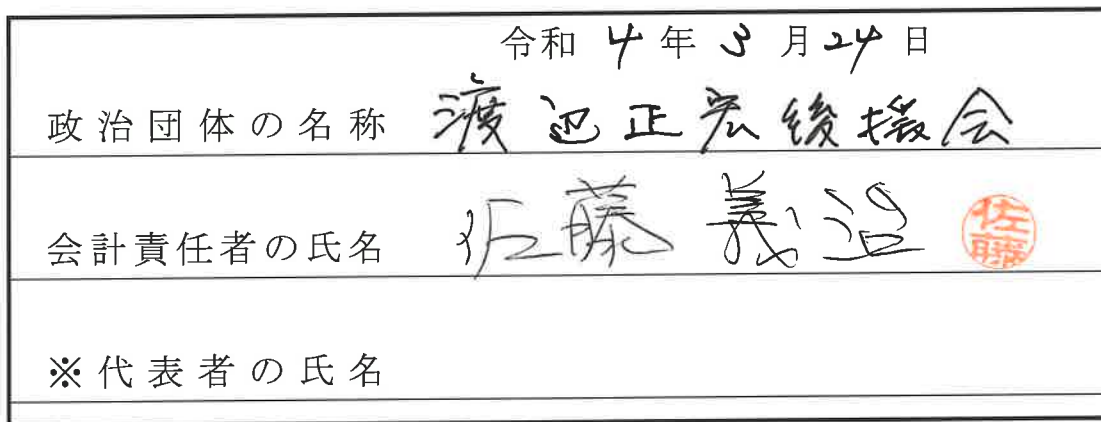 令和 4 年 3 月 24 日
政治団体の名称 渡辺正宏後援会
会計責任者の氏名 佐藤 義治 佐藤
※代表者の氏名